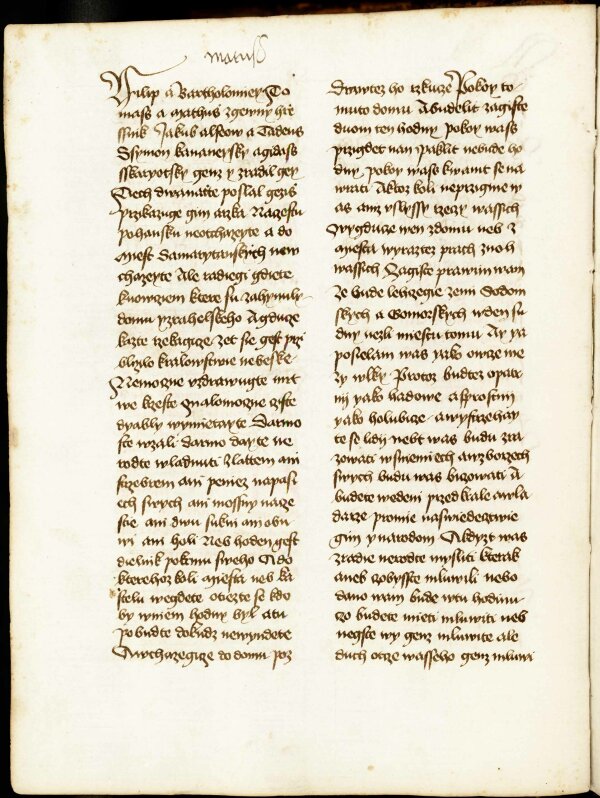 matuss
Filip a Bartholomiey To
mass a mathus zgewny hrze
ssnik Jakub alfeow a Tadeus
Ssymon kananeysky a gidass
sskaryotsky genz y zradil gey
Tiech dwanatte poslal gezis
przikazuge gim arzka Na zestu
pohansku neotchazeyte a do
miest Samarytanskych new
chazeyte Ale radiegi gdiete
k uowciem ktere su zahynuly
domu yzrahelskeho A gduze
kazte rzekagize zet sie gest przi
blizilo kralowstwie nebeske
Nemozne vzdrawugte mrt
we krzieste malomozne czste
dyably wymietayte Darmo
ste wzali darmo dayte ne
rodte wladnuti zlattem ani
strzebrem ani peniez napasi
ech swych ani mossny naze
stie ani dwu sukni ani obu
wi ani holi Neb hoden gest
dielnik pokrmu sweho A do
kterehoz koli miesta neb ka
stelu wegdete otiezte se kdo
by wniem hodny byl a tu
pobudte dokudz newyndete
A wchazegize do domu poz
drawtez ho rzkuze Pokoy to
muto domu A budelit zagiste
duom ten hodny pokoy wass
przigdet nan Paklit nebude ho
dny pokoy wass k wamt se na
wrati A ktoz koli neprzigme w
as aniz vslyssy rzeczy wassich
wygduze wen zdomu neb z
miesta wyraztez prach z noh
wassich Zagiste prawim wam
Ze bude lehczegie zemi Sodom
skych a Gomorskych w den su
dny nezli miestu tomu Ay ya
posielam was yako owcze me
zy wlky Protoz budtez opatr
ni yako hadowe a sprostni
yako holubicze a wystrzichay
te se lidi nebt was budu zra
zowati w sniemiech a w zborzech
swych budu was biczowati A
budete wedeni przed krale a wla
darze pro mie na swiedectwie
gim y narodom A kdyzt was
zradie nerodte mysliti kterak
aneb czo byste mluwili nebo
dano wam bude w tu hodinu
czo budete mieti mluwiti neb
negste wy genz mluwite ale
duch otcze wasseho genz mluwi